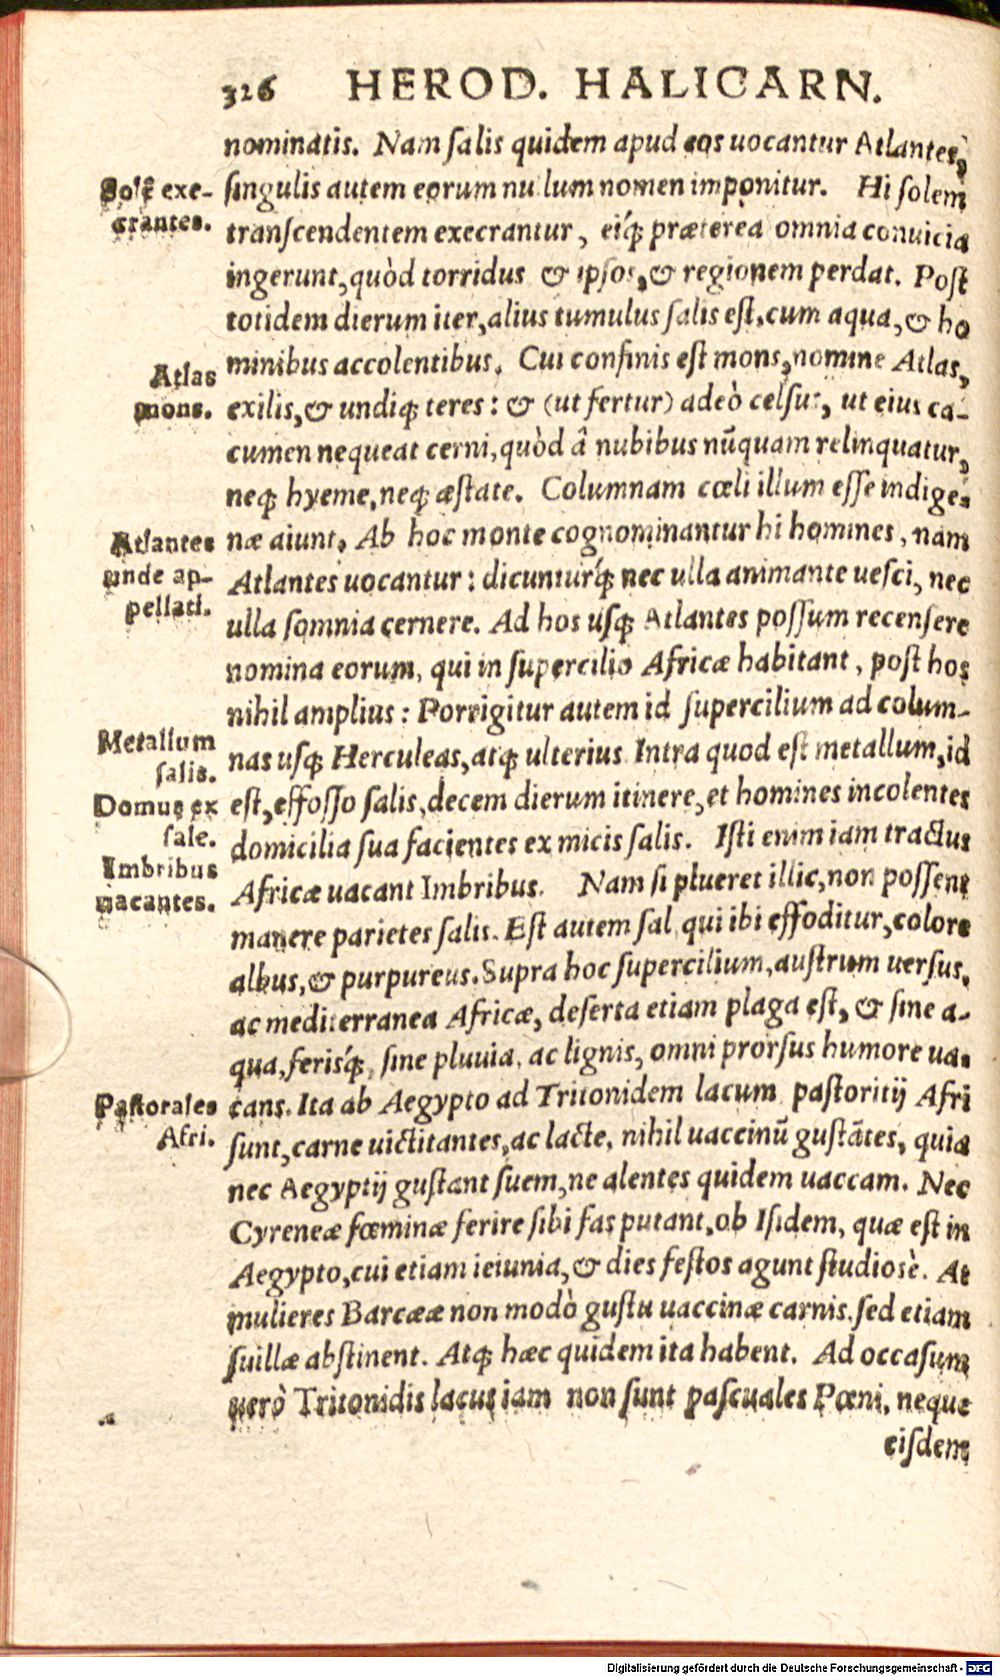 326 HEROD. HALICARN.
nominatis. Nam ſalis quidem apud eos uocantur Atlantes,
ſingulis autem eorum nullum nomen imponitur. Hi ſolem
tranſcendentem execrantur, eiq́; præterea omnia conuicia
ingerunt, quòd torridus & ipſos, & regionem perdat. Poſt
totidem dierum iter, alius tumulus ſalis eſt, cum aqua, & ho
minibus accolentibus. Cui confinis eſt mons, nomine Atlas,
exilis, & undiq; teres: & (ut fertur) adeò celſus, ut eius ca-
cumen nequeat cerni, quòd â nubibus nũquam relinquatur,
neq; hyeme, neq; æſtate. Columnam cœli illum eſſe indige-
næ aiunt. Ab hoc monte cognominantur hi homines, nam
Atlantes uocantur: dicunturq́; nec ulla animante ueſci, nec
ulla ſomnia cernere. Ad hos uſq; Atlantes poſſum recenſere
nomina eorum, qui in ſupercilio Africæ habitant, poſt hos
nihil amplius: Porrigitur autem id ſupercilium ad colum-
nas uſq; Herculeas, atq; ulterius. Intra quod eſt metallum, id
eſt, effoſſo ſalis, decem dierum itinere, et homines incolentes
domicilia ſua facientes ex micis ſalis. Iſti enim iam tractus
Africæ uacant Imbribus. Nam ſi plueret illic, non poſſent
manere parietes ſalis. Eſt autem ſal, qui ibi effoditur, colore
albus, & purpureus. Supra hoc ſupercilium, auſtrum uerſus,
ac mediterranea Africæ, deſerta etiam plaga eſt, & ſine a-
qua, ferisq́;, ſine pluuia, ac lignis, omni prorſus humore ua-
cans. Ita ab Aegypto ad Tritonidem lacum paſtoritij Afri
ſunt, carne uictitantes, ac lacte, nihil uaccinũ guſtãtes, quia
nec Aegyptij guſtant ſuem, ne alentes quidem uaccam. Nec
Cyreneæ fœminæ ferire ſibi fas putant, ob Iſidem, quæ eſt in
Aegypto, cui etiam ieiunia, & dies feſtos agunt ſtudiosè. At
mulieres Barcææ non modò guſtu uaccinæ carnis, ſed etiam
ſuillæ abſtinent. Atq; hæc quidem ita habent. Ad occaſum
uerò Tritonidis lacus iam non ſunt paſcuales Pœni, neque
eiſdem
Solẽ exe-
crantes.
Atlas
mons.
Atlantes
unde ap-
pellati.
Metallum
ſalis.
Domus ex
ſale.
Imbribus
uacantes.
Paſtorales
Afri.
Digitalisierung gefördert durch die Deutsche Forschungsgemeinschaft - DFG